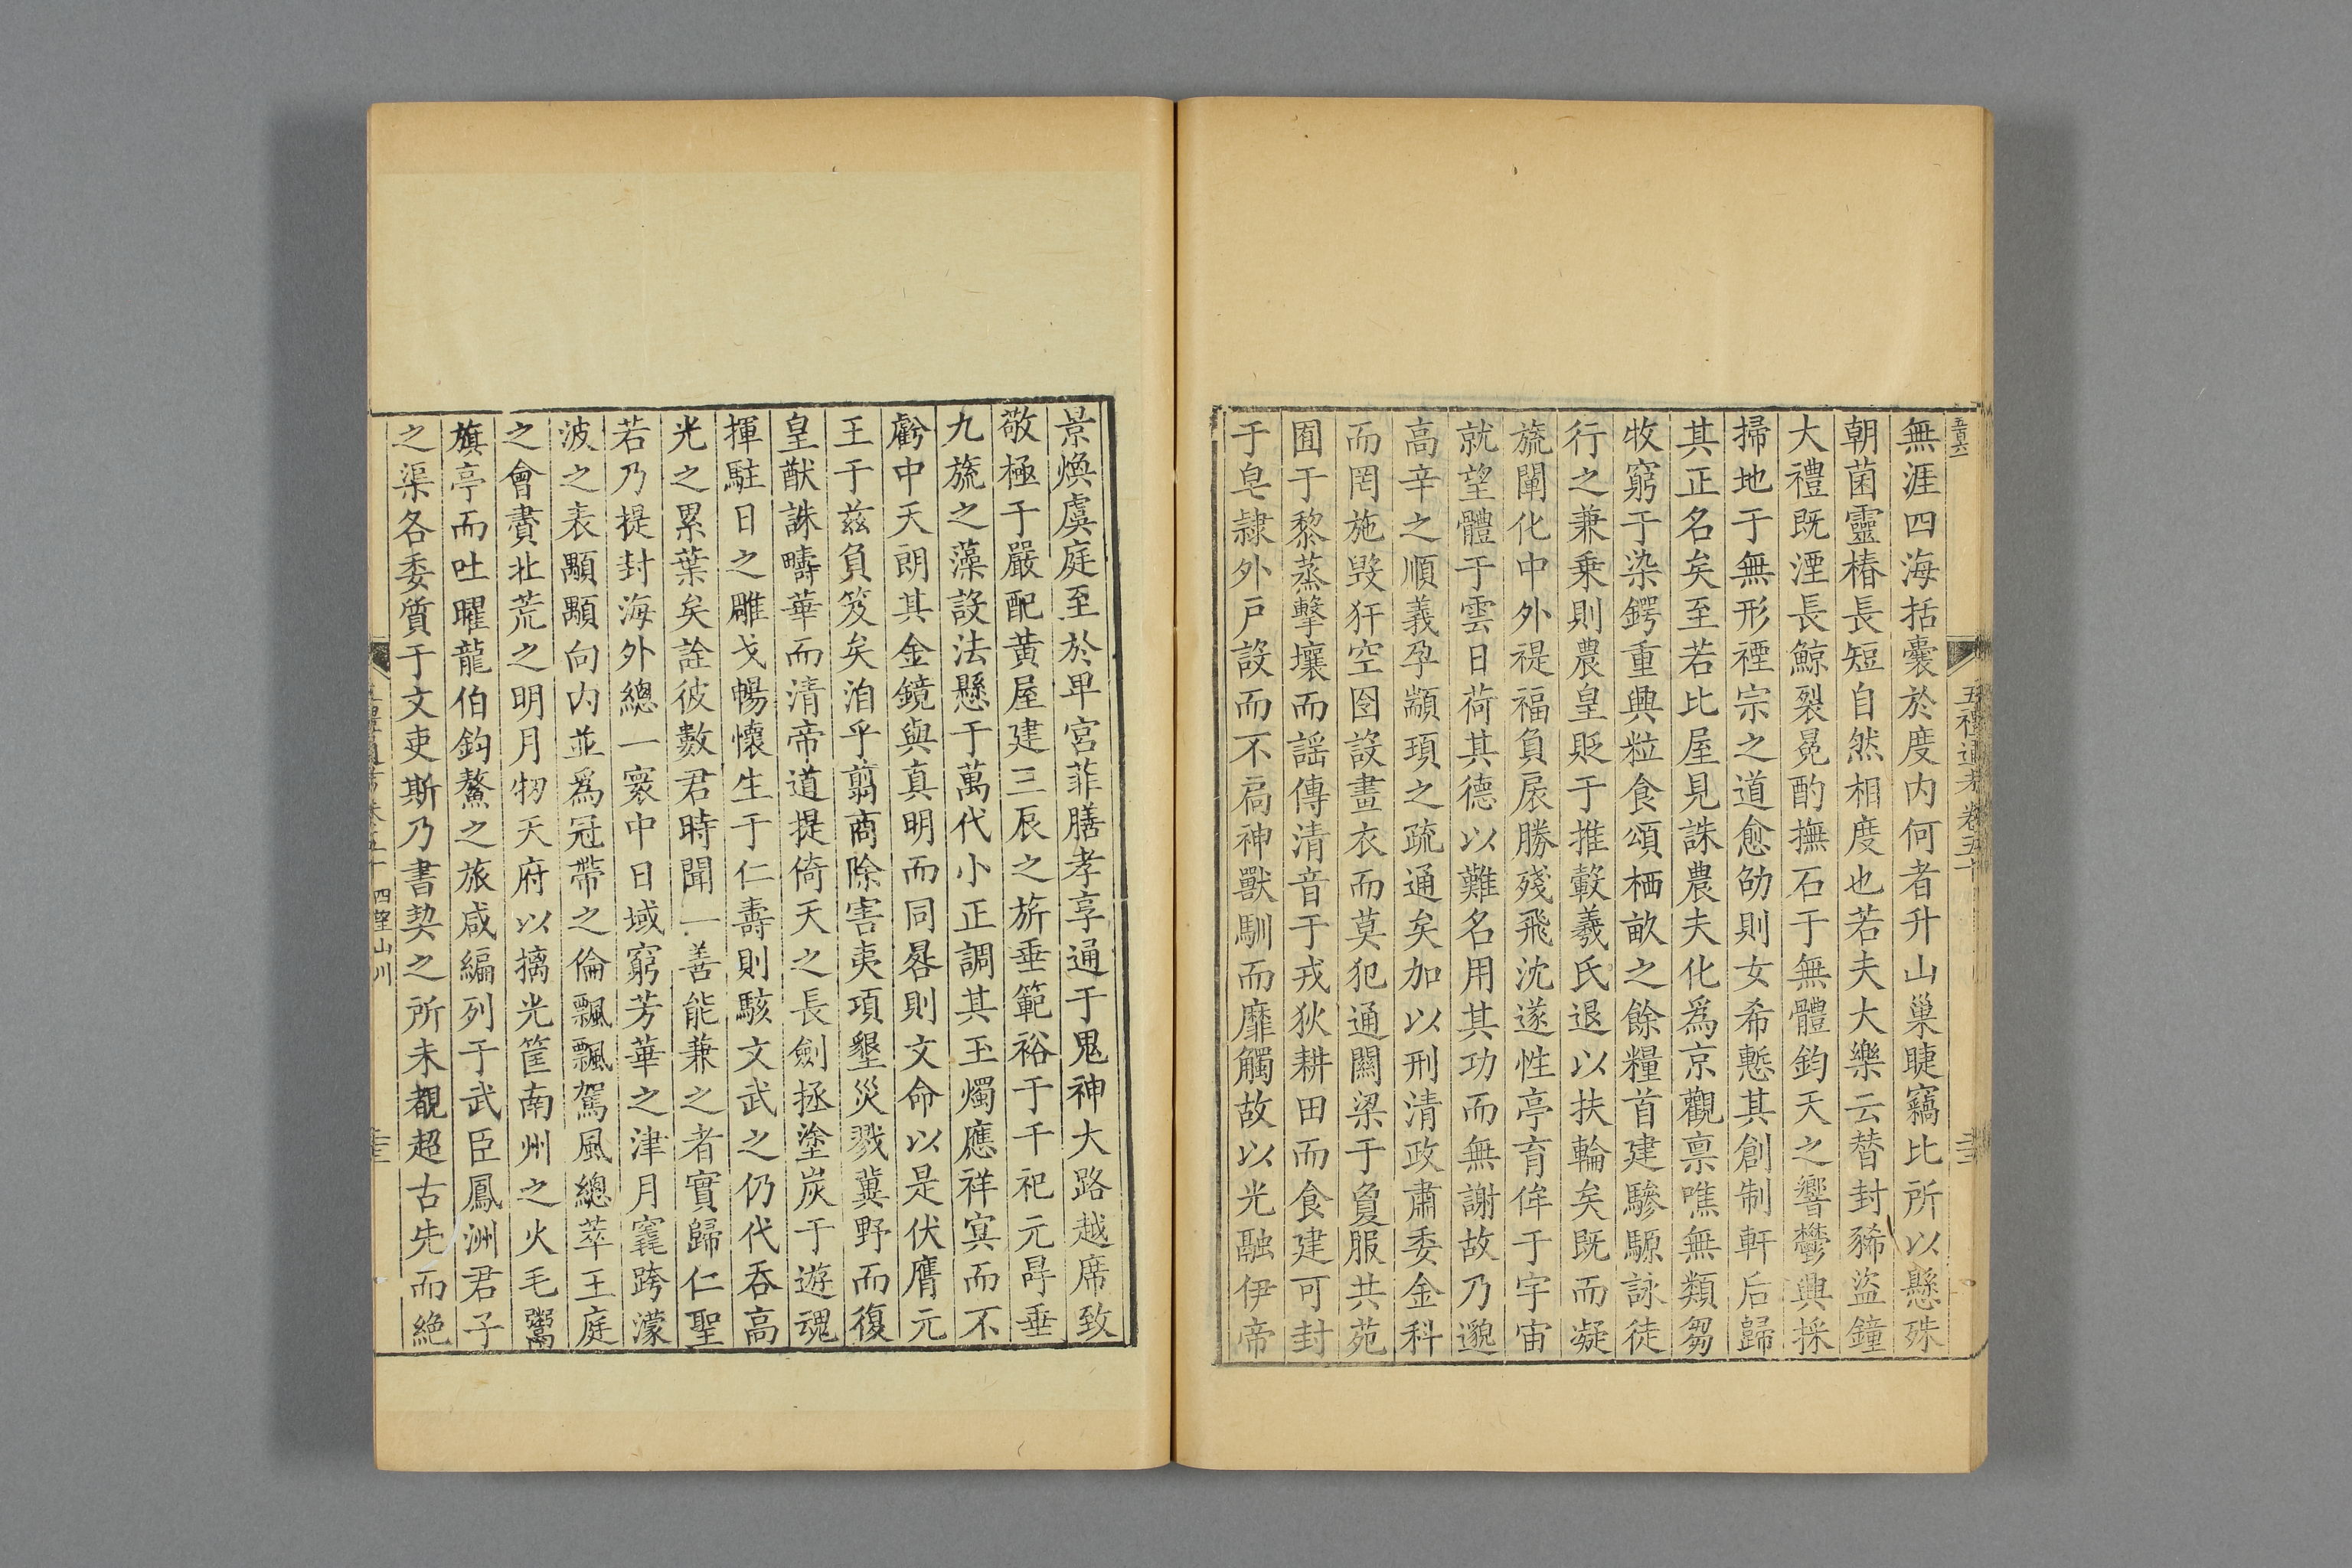 五百六
五禮通考卷五十
無涯四海括囊於度内何者升山巢睫竊比所以懸殊
朝菌靈椿長短自然相度也若夫大樂云替封豨盜鐘
大禮既湮長鯨裂冕酌撫石于無體鈞天之響鬱興採
掃地于無形禋宗之道愈劭則女希慙其創制軒后歸
其正名矣至若比屋見誅農夫化爲京觀禀噍無類芻
牧窮于染鍔重興粒食頌栖畝之餘糧首建驂騵詠徒
行之兼乗則農皇貶于推轂羲氏退以扶輪矣既而凝
旒闡化中外禔福負扆勝殘飛沈遂性亭育侔于宇宙
就望體于雲日荷其德以難名用其功而無謝故乃邈
高辛之順義孕顓頊之疏通矣加以刑清政肅委金科
而罔施毁犴空囹設畫衣而莫犯通闢梁于負服共苑
囿于黎蒸擊壤而謡傳清音于戎狄耕田而食建可封
于皂隷外戸設而不扃神獸馴而靡觸故以光融伊帝
景煥虞庭至於卑宮菲膳孝享通于鬼神大路越席致
敬極于嚴配黃屋建三辰之旂垂範裕于千祀元冔垂
九旒之藻設法懸于萬代小正調其玉燭應祥寞而不
虧中天朗其金鏡與真明而同晷則文命以是伏膺元
王于兹負笈矣洎乎翦商除害夷項墾災戮冀野而復
皇猷誅疇華而清帝道提倚天之長劍拯塗炭于遊魂
揮駐日之雕戈暢懷生于仁壽則駭文武之仍代吞高
光之累葉矣詮彼數君時聞一善能兼之者實歸仁聖
若乃提封海外總一寰中日域窮芳華之津月窟跨濛
波之表顒顒向内並爲冠帶之倫飄飄駕風總萃王庭
之會賮北荒之明月牣天府以摛光筐南州之火毛鬻
旗亭而吐曜龍伯釣鰲之旅咸編列于武臣鳳洲君子
之渠各委質于文吏斯乃書契之所未覩超古先而絶
四望山川